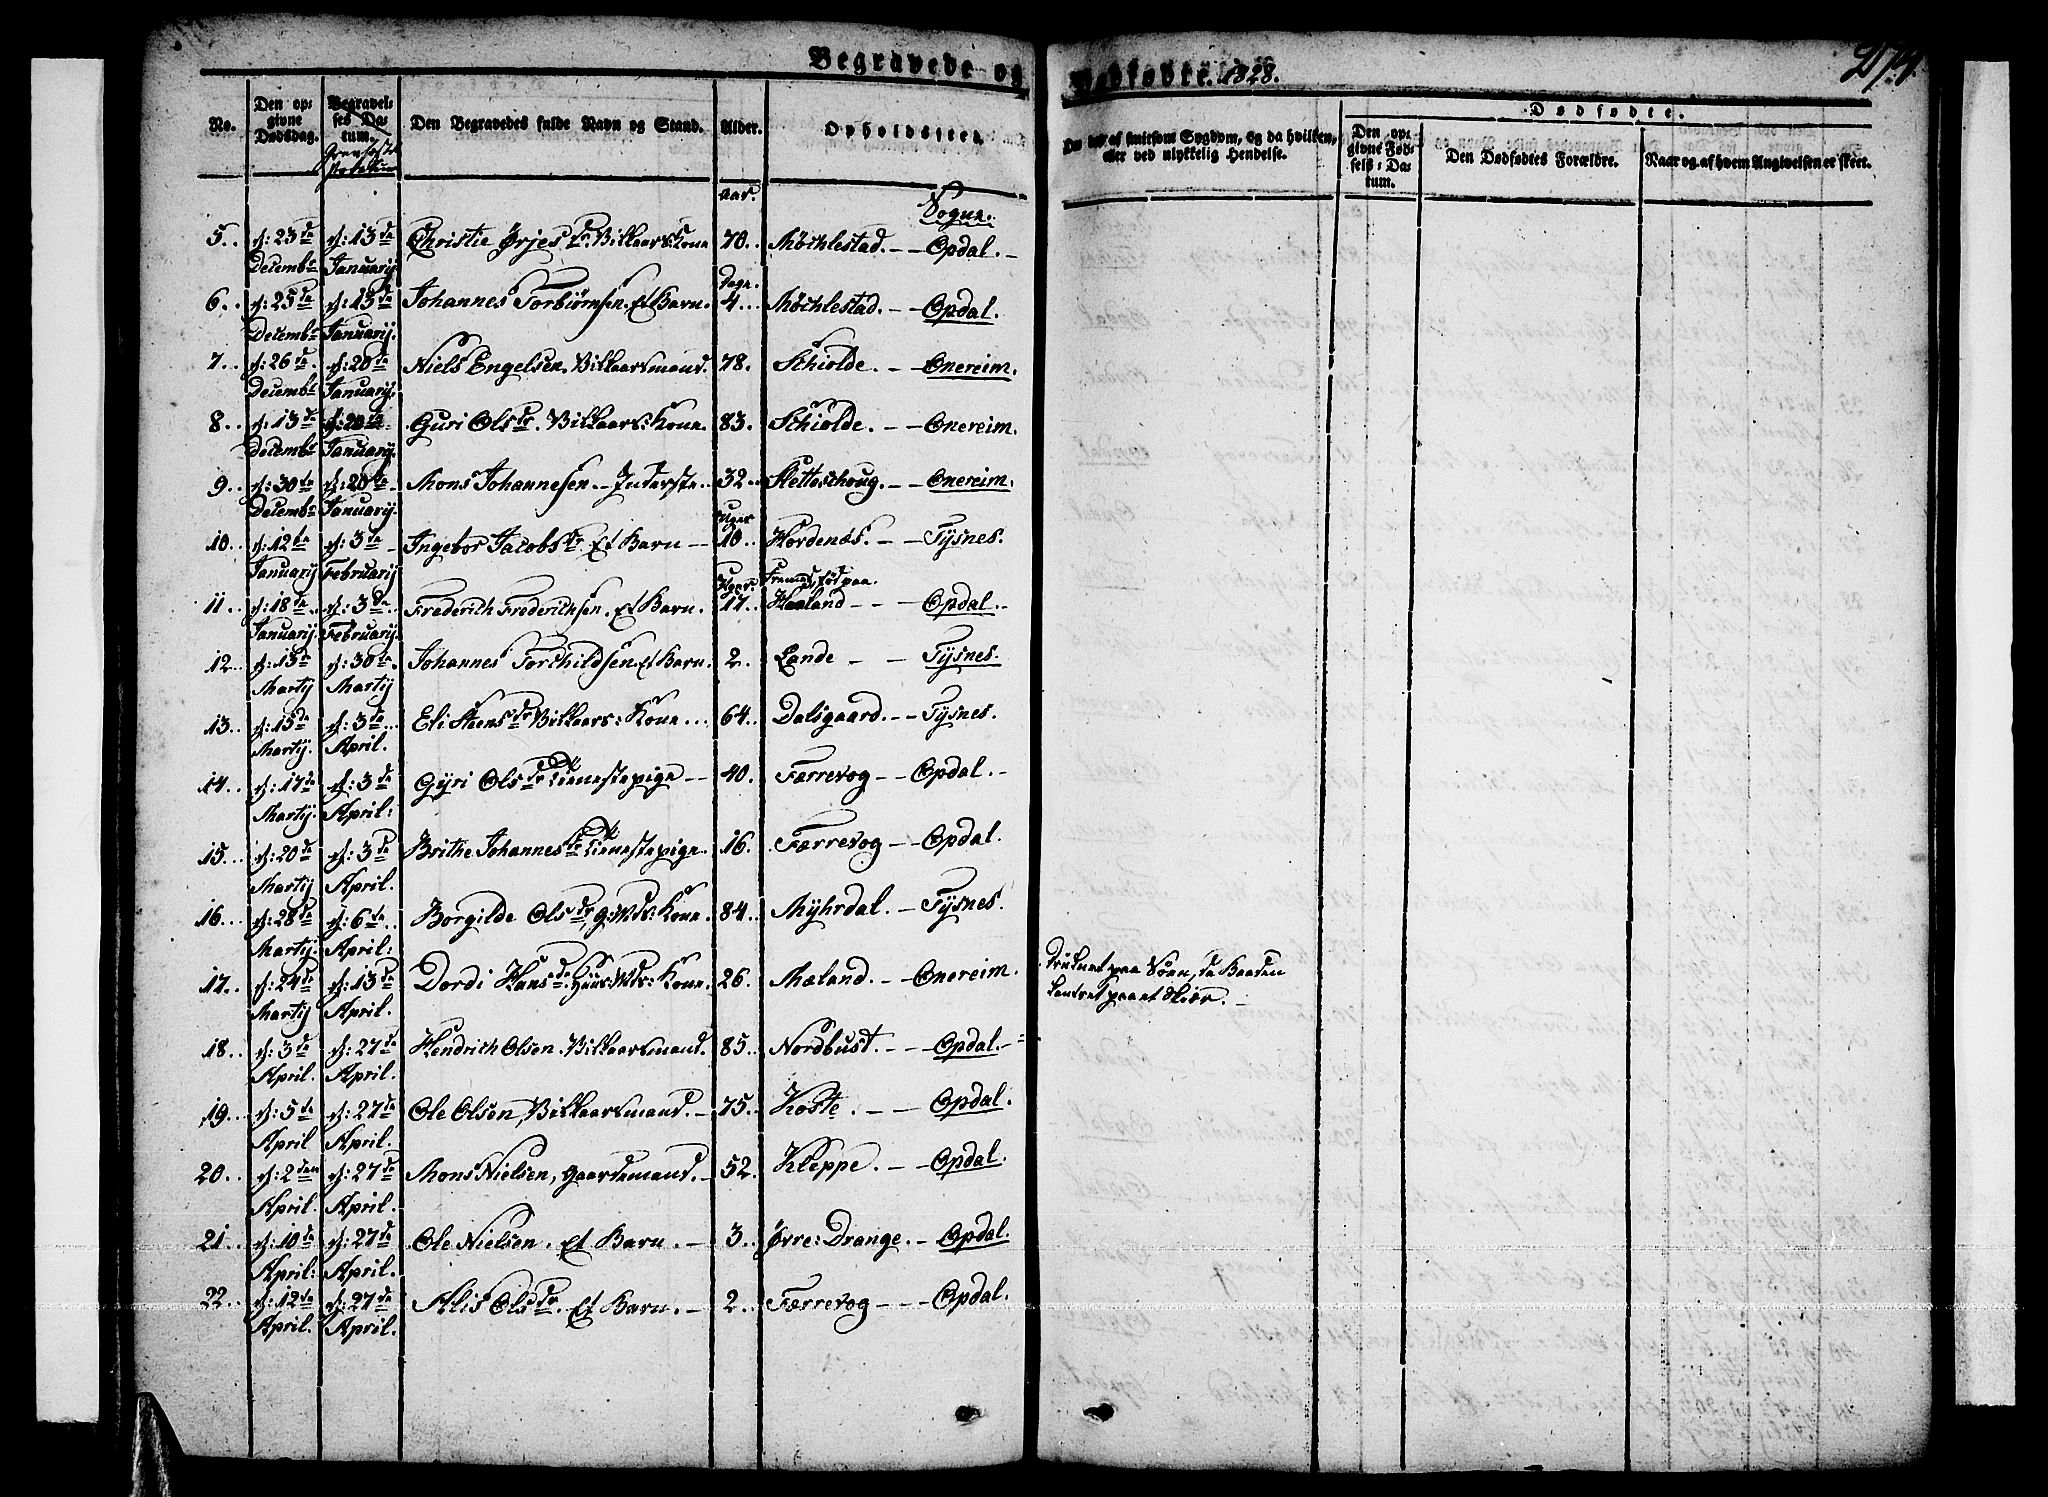 Begravede og Dødfødte. 1828.
274.
No. Den opgivne Dødsdag. Begravelses Datum. Den Begravedes fulde Navn og Stand. Alder. Opholdssted. Om død af smitsom Sygdom, og da hvilken, eller ved ulykkelig Hendelse. Dødfødte.
Den opgivne Fødsels-Datum. Den Dødfødtes Forældre. Naar og af hvem Angivelsen er skeet.
Aar. Sogne.
5.. d: 23de Decembr d: 13de Januarij Christie Ørjesdr Vilkaars Kone 70.. Møchlestad. – – Opdal. –
Dage.
6.. d: 25de Decembr d: 13de Januarij. Johannes Torbiørnsen. Et Barn. 4... Møchlestad. – – Opdal.
7.. d: 26de. Decembr d: 20de Januarij. Niels Engelsen. Vilkaarsmand. 78. Schiolde. – – Onereim.
8.. d: 13de Decembr d: 20de Januarij. Guri Olsdr. Vilkaars: Kone. 83. Schiolde. – – Onereim.
9.. d: 30te Decembr d: 20de Januarij. Mons Johannesen – Inderste.. 32.. Fletteschoug. – – Onereim.
Uger
10.. d: 12te Januarij d: 3de Februarij Ingebor Jacobsdr Et Barn – – 10.. Hordenæs. – – Tysnes.
Uger. Fremmed, død paa.
11.. d: 18de.. Januarij. d: 3de.. Februarij. Frederich Frederichsen. Et Barn. 17.. Haaland – – – Opdal. –
12.. d: 13de Martij d: 30te. Martij Johannes Torchildsen Et Barn. 2.. Lande – – Tysnes.
13.. d: 15de Martij. d: 3de.. April. Eli Steensdr Vilkaars: Kone... 64.. Dalsgaard. – – Tysnes.
14.. d: 17de Martij. d: 3de April: Gyri Olsdr Tienestepige – – 40. Færrevog – – Opdal. –
15... d: 20de Martij d: 3de April. Brithe Johannesdr Tienestepige.. 16. Færrevog – Opdal.
16.. d: 28de Martij. d: 6te.. April: Borgilde Olsdr, G: Mds: Kone. 84.. Myhrdal. – Tysnes.
17.. d: 24de Martij d: 13de April. Dordi Hansdr. Huus: Mds: Kone. 26. Mæland. – Onereim. Druknet paa Søen, da Baaden
kantret paa et Skiær. –
18.. d: 3de April. d: 27de April. Hendrich Olsen. Vilkaarsmand. 85.. Nordbust. – – Opdal. –
19.. d: 5te April d: 27de April. Ole Olsen, Vilkaarsmand. – 75. Koste. – – Opdal.
20.. d: 2den April. d: 27de April. Mons Nielsen, Gaardemand. – 52. Kleppe. – – Opdal.
21.. d: 10de April: d: 27de April. Ole Nielsen. Et Barn. – 3.. Øvre: Drange. – Opdal.
22.. d: 12te April. d: 27de April. Alis Olsdr. Et Barn. – 2.. Færrevog – – – Opdal.